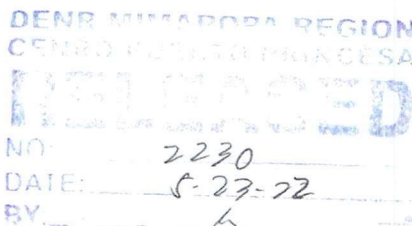 DENR MIMAROPA REGION
CENRO PUERTO PRINCESA
RELEASED
NO: 2230
DATE: 5-23-22
BY